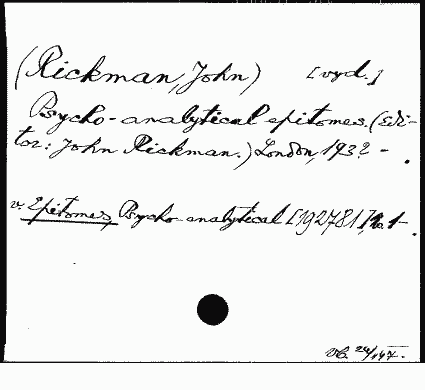 (Rickman, John) [vyd.]
Psycho-analytical epitomes. (Edi-
tor: John Rickman.) London, 1932 - .
v. Epitomes, Psycho-analytical [192781] No. 1- .